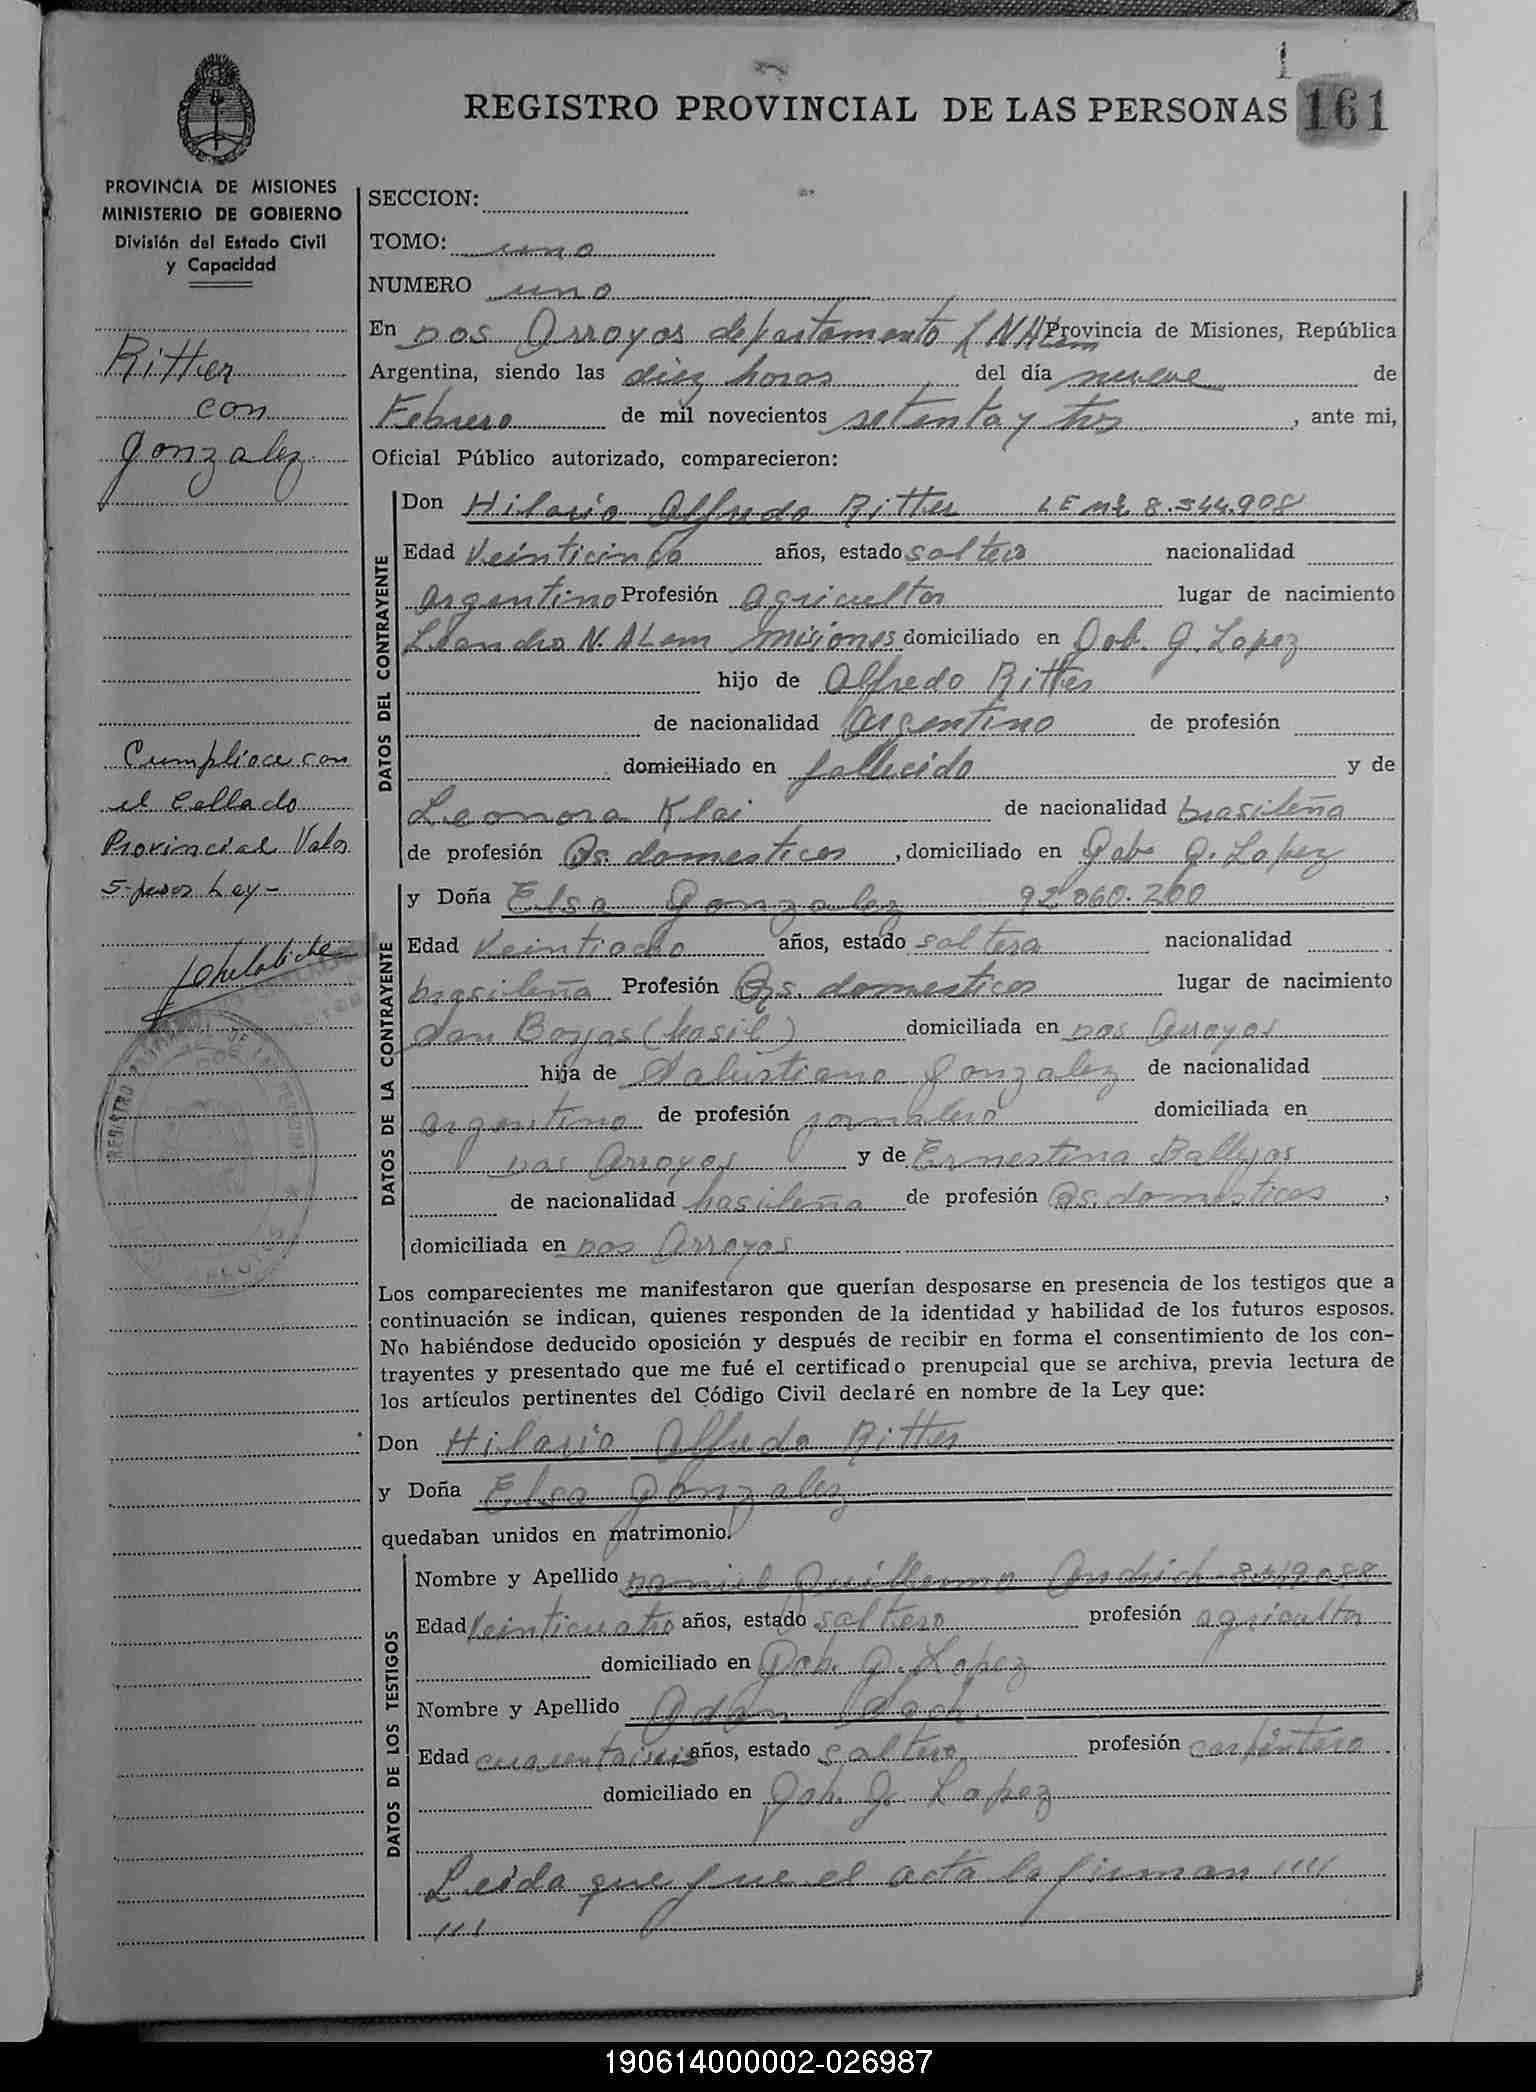 1
REGISTRO PROVINCIAL DE LAS PERSONAS 161
PROVINCIA DE MISIONES
MINISTERIO DE GOBIERNO
División del Estado Civil
y Capacidad
Ritter
con
Gonzalez
Cumpliose con
el Cellado
Provincial Valor
5- pesos Ley-
SECCION:
TOMO: uno
NUMERO uno
En Dos Arroyos departamento L N Alem Provincia de Misiones, República
Argentina, siendo las diez horas del día nueve de
Febrero de mil novecientos setenta y tres, ante mi,
Oficial Público autorizado, comparecieron:
DATOS DEL CONTRAYENTE
Don Hilario Alfredo Ritter LE Nº 8.544.908
Edad Veinticinco años, estado soltero nacionalidad
argentino Profesión agricultor lugar de nacimiento
Leandro N. ALem Misiones domiciliado en Gob. G. Lopez
hijo de Alfredo Ritter
de nacionalidad Argentino de profesión
domiciliado en fallecido y de
Leonora Klai de nacionalidad brasileña
de profesión Qs. domesticos, domiciliado en Gob. G. Lopez
DATOS DE LA CONTRAYENTE
y Doña Elsa Gonzalez 92 060.200
Edad Veintiocho años, estado soltera nacionalidad
brasileña Profesión Qs. domesticos lugar de nacimiento
San Borjas (brasil) domiciliada en Dos Arroyos
hija de Salustiano Gonzalez de nacionalidad
argentino de profesión jornalero domiciliada en
Dos Arroyos y de Ernestina Ballejos
de nacionalidad brasileña de profesión Qs. domesticos,
domiciliada en Dos Arroyos
Los comparecientes me manifestaron que querían desposarse en presencia de los testigos que a
continuación se indican, quienes responden de la identidad y habilidad de los futuros esposos.
No habiéndose deducido oposición y después de recibir en forma el consentimiento de los con-
trayentes y presentado que me fué el certificado prenupcial que se archiva, previa lectura de
los artículos pertinentes del Código Civil declaré en nombre de la Ley que:
Don Hilario Alfredo Ritter
y Doña Elsa Gonzalez
quedaban unidos en matrimonio.
DATOS DE LOS TESTIGOS
Nombre y Apellido Daniel Guillermo Andrich
Edad Veinticuatro años, estado soltero profesión agricultor
domiciliado en Gob. G. Lopez
Nombre y Apellido Adan
Edad cuarentaiseis años, estado soltero profesión carpintero
domiciliado en Gob. G. Lopez
Leida que fue el acta la firman ////
///
190614000002-026987